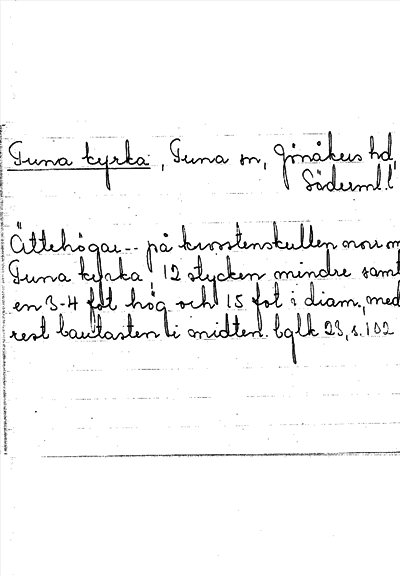 Tuna kyrka, Tuna sn, Jönåkers hd,
Söderml.
Ättehögar -- på kvarnstenskullen norr om
Tuna kyrka, 12 stycken mindre samt
en 3-4 fot hög och 15 fot i diam., med
rest bautasten i midten. bglk 23, s. 102